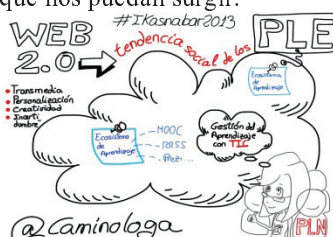 que nos puedan surgir?
#IKasnabar2013
WEB
2.0
tendencia social de los
PLE
• Transmedia
• Personalización
• Creatividad
• Incerti
dumbre
Ecosistema
de
Aprendizaje
Ecosistema
de
Aprendizaje
MOOC
RRSS
Prezi...
Gestión del
Aprendizaje
con TIC
@caminologa
PLN